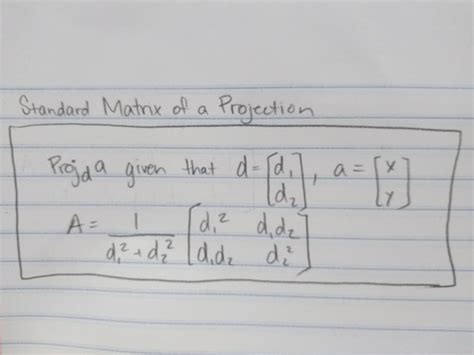 Standard Matrix of a Projection
Proj_d a given that d = [d₁ d₂], a = [x y]
A = 1/(d₁² + d₂²) [d₁² d₁d₂; d₁d₂ d₂²]